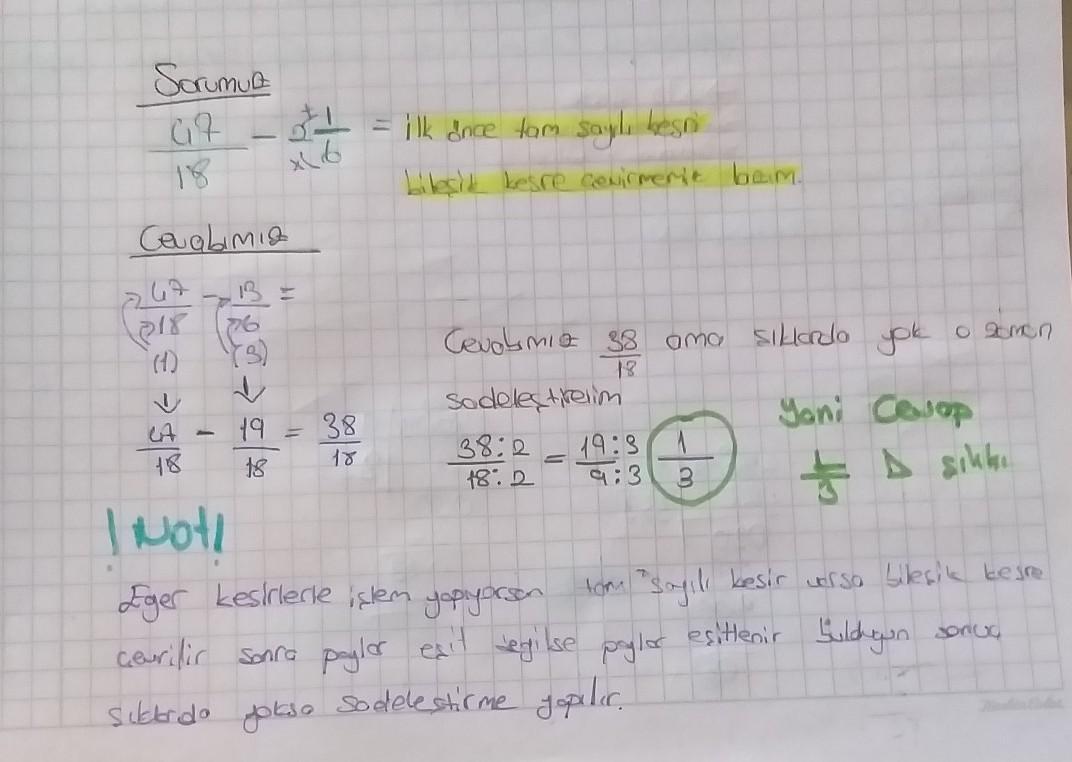 Sorumuz
47/18 - 2 1/6 = ilk önce tam sayılı kesri
bileşik kesre çevirmemiz lazım.
Cevabımız
47/18 - 13/6 =
(1) (3)
47/18 - 19/18 = 38/18
Cevabımız 38/18 ama şıklarda yok o zaman
sadeleştirelim
38:2/18:2 = 19:3/9:3 1/3
Yani Cevap
1/3 D şıkkı
! Not!
Eğer kesirlerle işlem yapıyorsan tam sayılı kesir varsa bileşik kesre
çevrilir sonra paylar eşit değilse paylar eşitlenir bulduğun sonuç
şıklarda yoksa sadeleştirme yapılır.